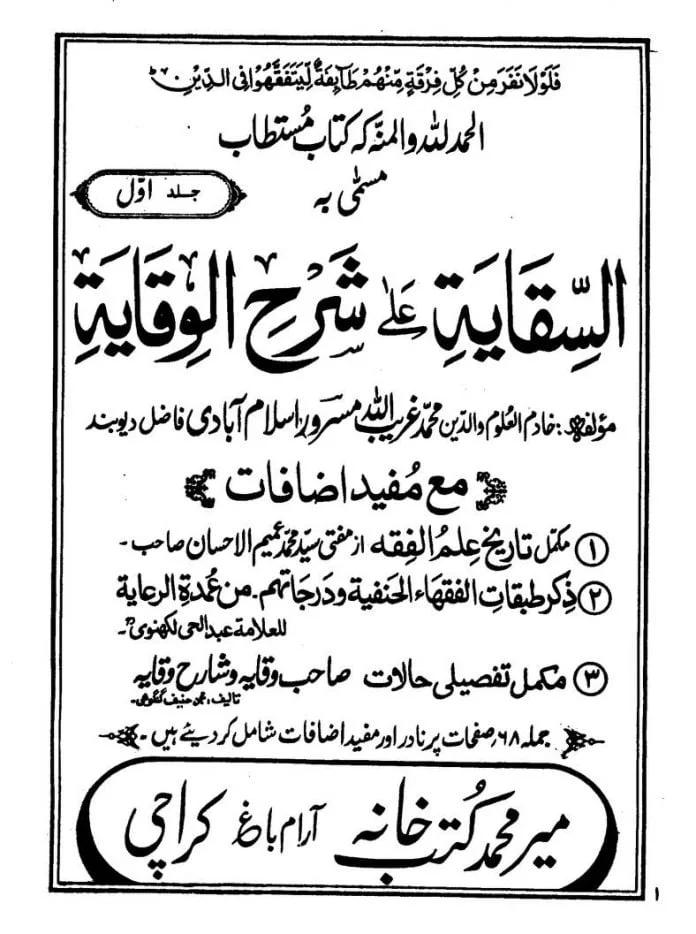 فَلَوْلَا نَفَرَ مِنْ كُلِّ فِرْقَةٍ مِّنْهُمْ طَآئِفَةٌ لِّيَتَفَقَّهُوْا فِى الدِّيْنِ
الحمد للہ والمنہ کہ کتاب مُستطاب
مسمّٰی بہ
جلد اوّل
السِّقَايَةِ عَلٰى شَرْحِ الْوِقَايَةِ
مؤلفہ: خادم العلوم والدین محمّد غریب اللہ مسرور اسلام آبادی فاضل دیوبند
مع مُفید اضافات
① مکمّل تاریخ علمُ الفِقہ از مفتی سیّد محمّد عمیم الاحسان صاحب۔
② ذِکر طبقاتِ الفقهاء الحنفية ودرجاتهم۔ من عُمدةِ الرعاية
للعلامة عبد الحی لکھنوی۔
③ مکمل تفصیلی حالات صاحب وقایہ و شارح وقایہ
تالیف: محمد حنیف گنگوہی۔
جملہ ۶۸ صفحات پر نادر اور مفید اضافات شامل کر دیئے ہیں۔
میر محمد کُتب خانہ آرام باغ کراچی
۱